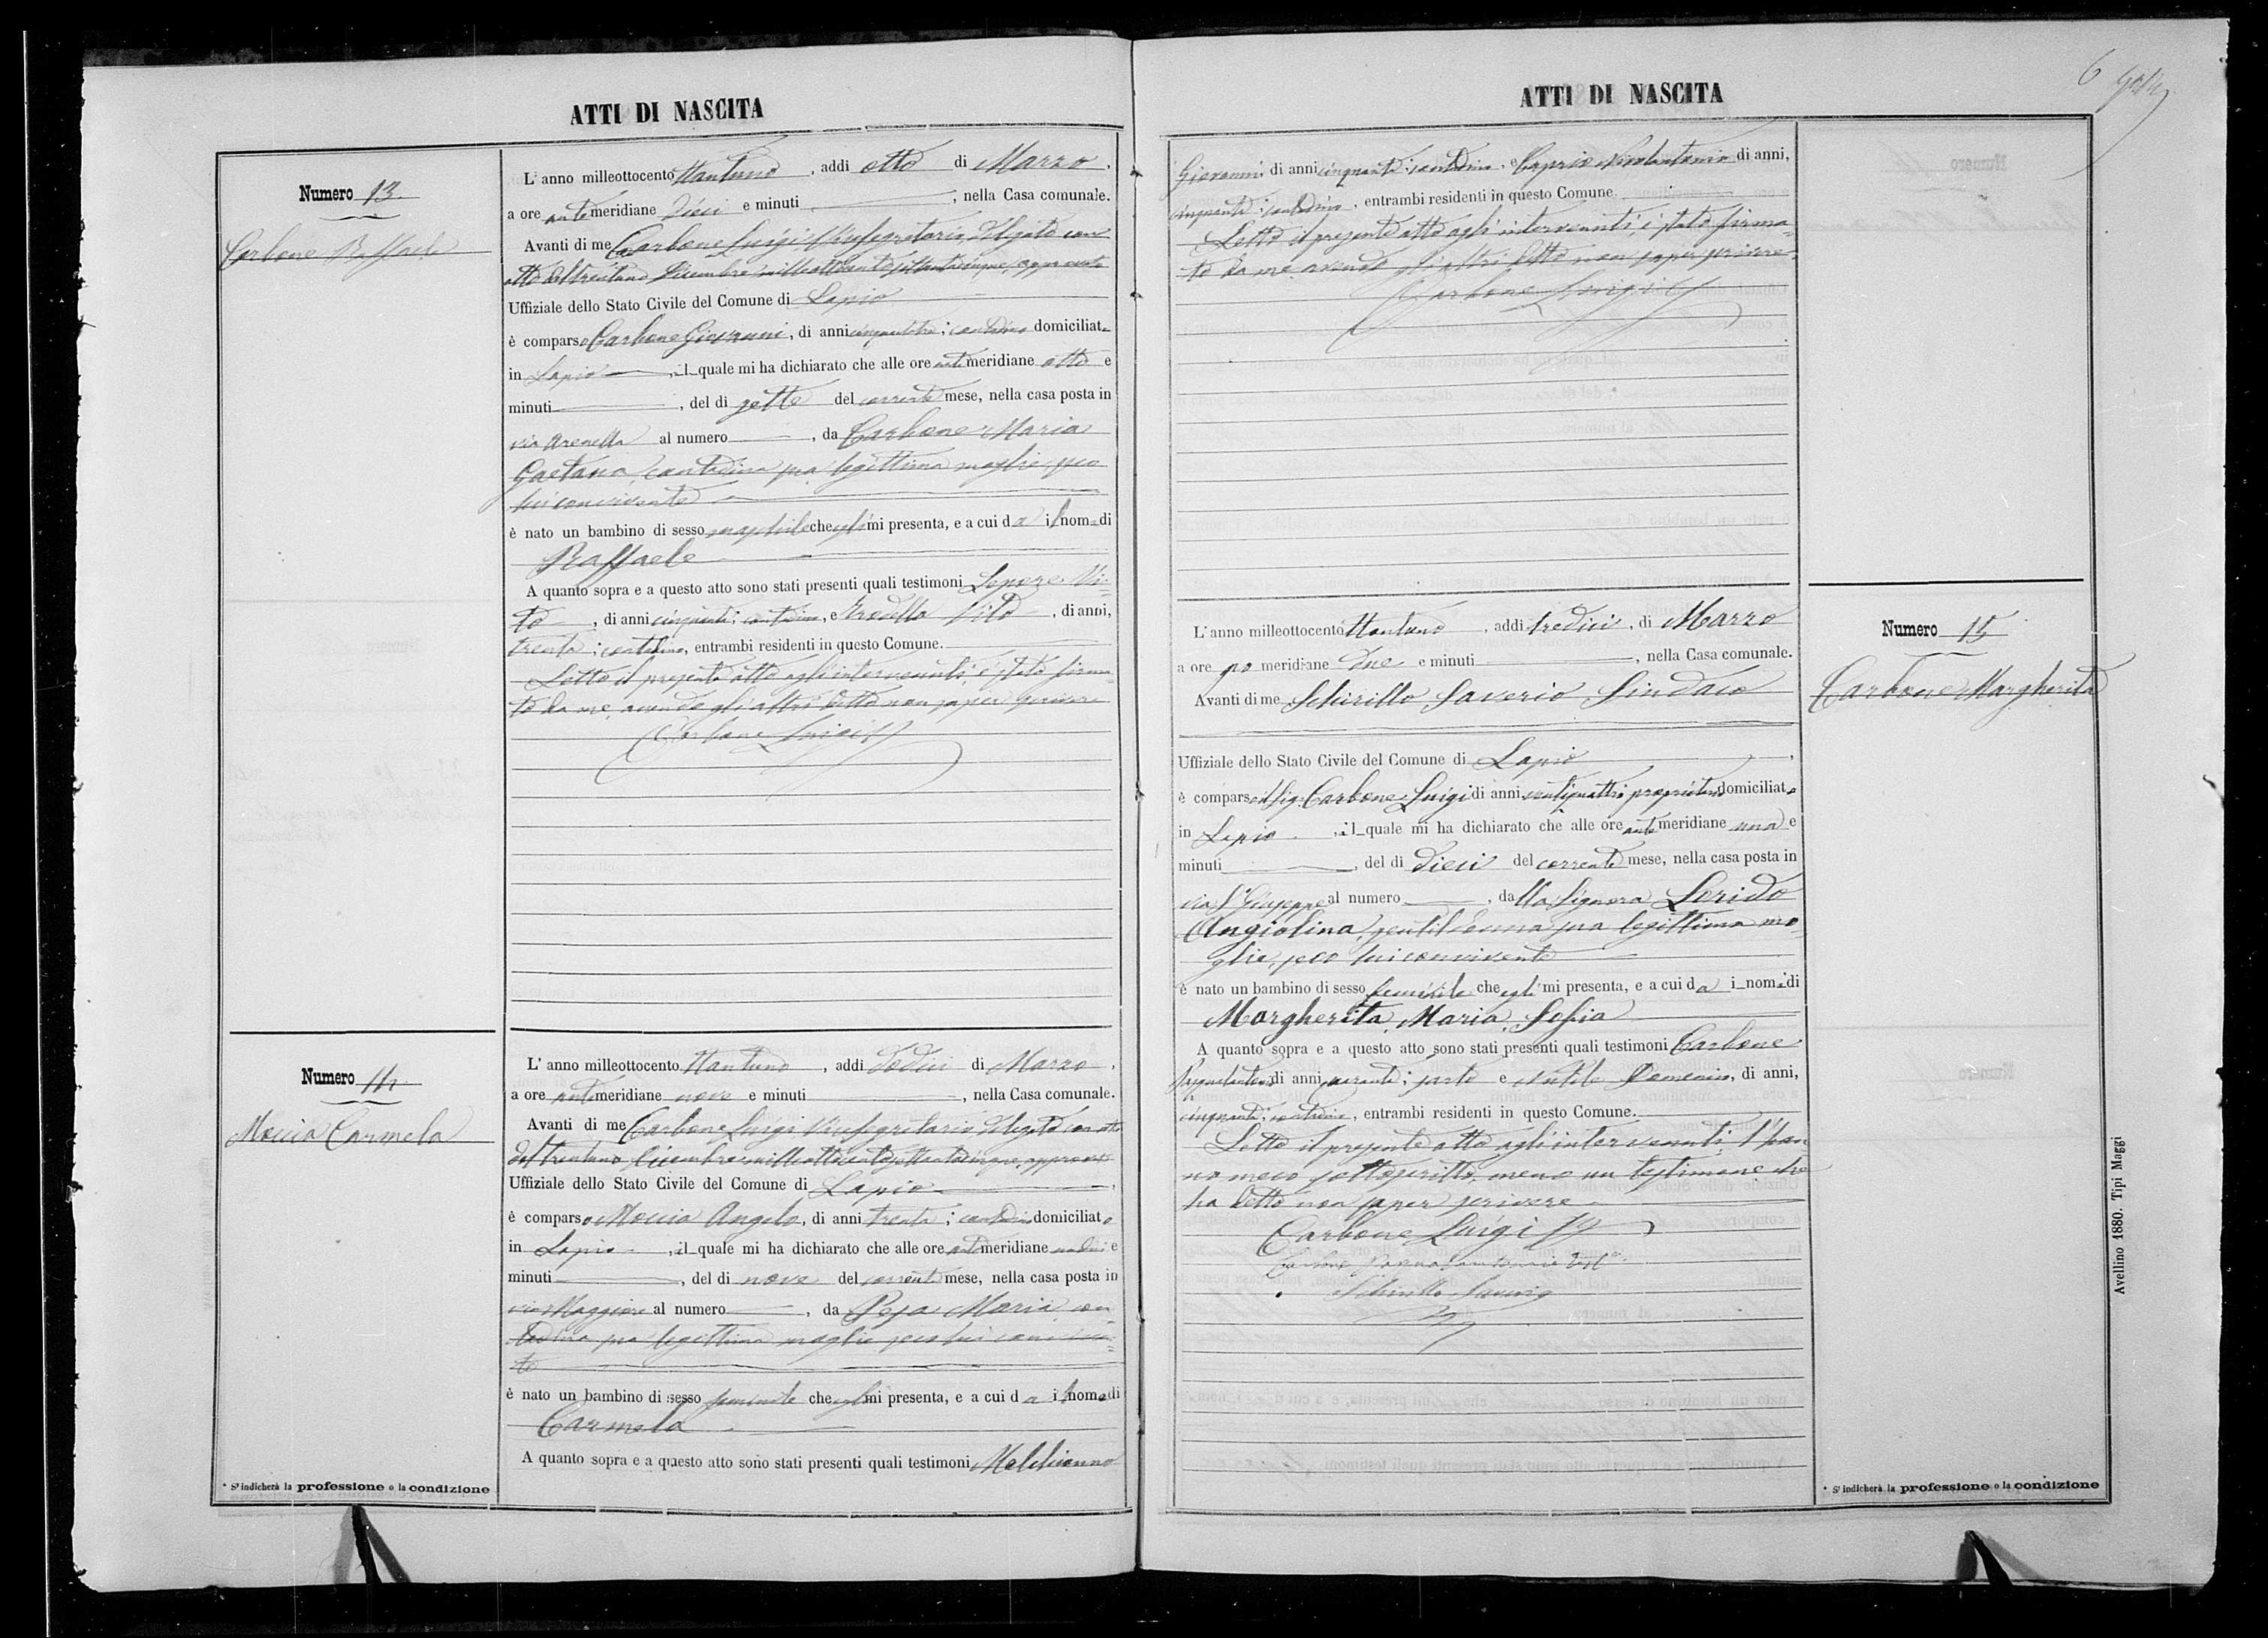 ATTI DI NASCITA
Numero 13.
Carbone Raffaele
L'anno milleottocento ottantuno, addì otto di Marzo,
a ore antemeridiane dieci e minuti, nella Casa comunale.
Avanti di me Carbone Luigi Vicesegretario, delegato con
atto del trentuno Dicembre milleottocentosettantacinque, approvato
Uffiziale dello Stato Civile del Comune di Lapio
è comparso Carbone Giovanni, di anni cinquantatre; contadino domiciliato
in Lapio, il quale mi ha dichiarato che alle ore antemeridiane otto e
minuti, del dì sette del corrente mese, nella casa posta in
via Arenella al numero, da Carbone Maria
Gaetana, contadina sua legittima moglie, seco
lui convivente
è nato un bambino di sesso maschile che egli mi presenta, e a cui dà il nome di
Raffaele
A quanto sopra e a questo atto sono stati presenti quali testimoni Lepore Vi=
to, di anni cinquanta; contadino, e Trodella Vito, di anni,
trenta; contadino, entrambi residenti in questo Comune.
Letto il presente atto agl'intervenuti, è stato firma=
to da me, avendo gli altri detto non saper scrivere
Carbone Luigi
Numero 14
Moccia Carmela
L'anno milleottocento ottantuno, addì dodici di Marzo,
a ore antemeridiane nove e minuti, nella Casa comunale.
Avanti di me Carbone Luigi Vicesegretario delegato con atto
del trentuno Dicembre milleottocentosettantacinque, approvato
Uffiziale dello Stato Civile del Comune di Lapio
è comparso Moccia Angelo, di anni trenta; contadino domiciliato
in Lapio, il quale mi ha dichiarato che alle ore antemeridiane undici e
minuti, del dì nove del corrente mese, nella casa posta in
via Maggiore al numero, da Pesa Maria, con=
tadina sua legittima moglie, seco lui conviven=
te
è nato un bambino di sesso femminile che egli mi presenta, e a cui dà il nome di
Carmela
A quanto sopra e a questo atto sono stati presenti quali testimoni
* Si indicherà la professione o la condizione
ATTI DI NASCITA
6
Giovanni, di anni cinquanta; contadino, e Caprio Nicolantonio di anni,
cinquanta; contadino, entrambi residenti in questo Comune.
Letto il presente atto agli intervenuti, è stato firma=
to da me avendo gli altri detto non saper scrivere
Carbone Luigi
Numero 15
Carbone Margherita
L'anno milleottocento ottantuno, addì tredici, di Marzo
a ore pomeridiane due e minuti, nella Casa comunale.
Avanti di me Schirillo Saverio, Sindaco
Uffiziale dello Stato Civile del Comune di Lapio,
è comparso il Sig. Carbone Luigi di anni ventiquattro proprietario domiciliato
in Lapio, il quale mi ha dichiarato che alle ore antemeridiane una e
minuti, del dì dieci del corrente mese, nella casa posta in
via S. Giuseppe al numero, dalla Signora Lorido
Angiolina, gentildonna sua legittima mo=
glie, seco lui convivente
è nato un bambino di sesso femminile che egli mi presenta, e a cui dà i nomi di
Margherita, Maria, Sofia
A quanto sopra e a questo atto sono stati presenti quali testimoni Carbone
Pasqualantonio di anni quaranta; sarto e Nutile Domenico, di anni,
cinquanta; contadino, entrambi residenti in questo Comune.
Letto il presente atto agl'intervenuti, l'han=
no meco sottoscritto, meno un testimone che
ha detto non saper scrivere
Carbone Luigi
Carbone Pasqualantonio test.
Schirillo Saverio
* Si indicherà la professione o la condizione
Avellino 1880. Tipi Maggi